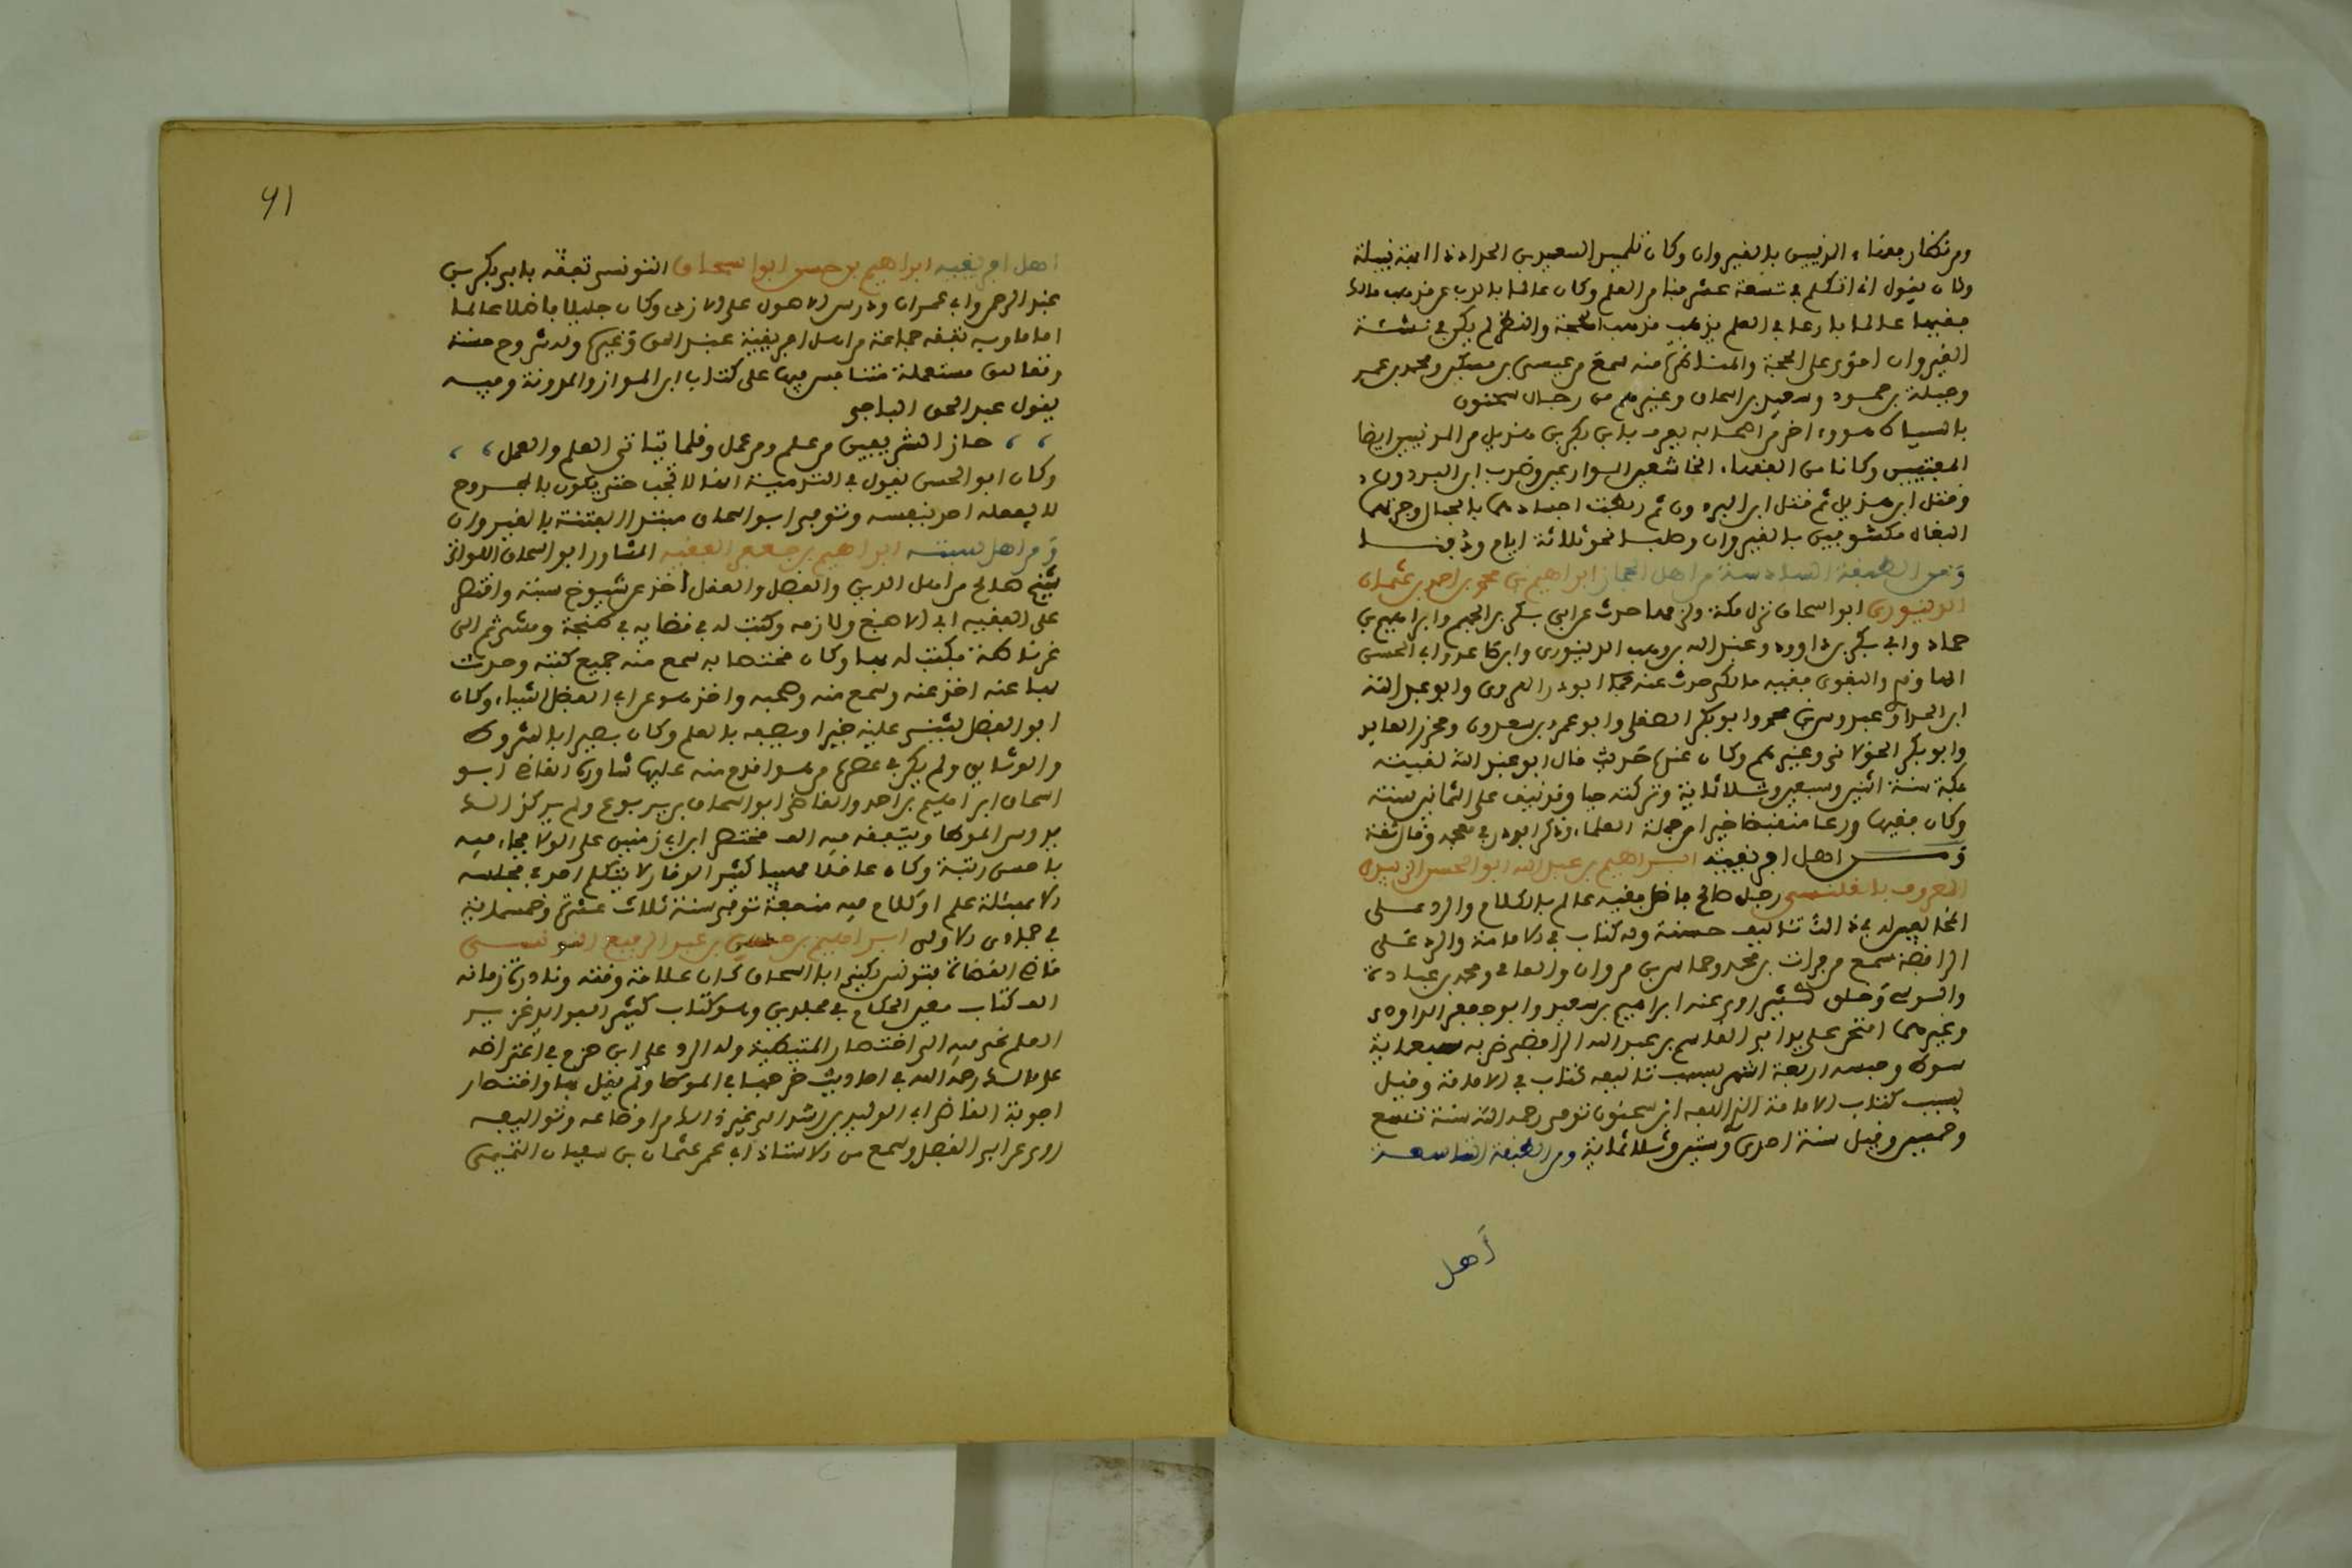 ومن نظار بعضاء المدنيين بالقيروان وكان تلميذ السعيد بن الحداد
وكان يقول انا اتكلم في تسعة عشر فنا من العلم وكان عالما بالذب عن مذهب مالك
فقيها عالما بارعا في العلم يذهب مذهب الحجة والنظر لم يكن في نشئة
القيروان اقوى على الحجة والمناظرة منه سمع من عيسى بن مسكين ومحمد بن عمر
وجبلة بن حمود وسعيد بن اسحاق وغيرهم من رجال سحنون
بالسياط هو واخر من اصحابه يعرف بابن بكر بن هذيل من المدنيين ايضا
المفتيين وكانا من الفقهاء
وقتل ابن هذيل ثم قتل ابن البردون ثم ربطت اجسادهما بالحبال وجرتهما
البغال مكشوفين بالقيروان وصلبا نحو ثلاثة ايام ودفنا
ومن الطبقة السادسة من اهل الحجاز ابراهيم بن محمد بن احمد بن عثمان
الدينوري ابو اسحاق نزل مكة ولزمها حدث عن ابي بكر بن الجهم وابراهيم بن
حماد وابي بكر بن داوود وعبد الله بن وهب الدينوري وابن صاعد وابي الحسن
والبغوي فقيه مالكي حدث عنه ابو ذر الهروي وابو عبد الله
ابن الحذاء وعبدوس بن محمد وابو بكر الصقلي وابو عمر بن سعدون ومحرز العابد
وابو بكر الخولاني وغيرهم وكان عنده حديث قال ابو عبد الله لقيته
بمكة سنة اثنين وسبعين وثلاثماية وتركته حيا وقد نيف على الثمانين سنة
وكان فقيها ورعا منقبضا خيرا من جملة العلماء وذكر ابو ذر في معجمه وقال ثقة
ومن اهل افريقية ابراهيم بن عبد الله ابو الحسن الزبيدي
المعروف بالقلانسي رجل صالح فاضل فقيه عالم بالكلام والرد على
المخالفين له في ذلك تئاليف حسنة وله كتاب في الامامة والرد على
الرافضة سمع من فرات بن محمد وحماس بن مروان والمغامي ومحمد بن عبادة
والسوسي وخلق كثير روى عنه ابراهيم بن سعيد وابو جعفر الداودي
وغيرهما امتحن على يد ابي القاسم بن عبد الله الرافضي ضربه سبعماية
سوط وحبسه اربعة اشهر بسبب تئاليفه كتاب في الامامة وقيل
بسبب كتاب الامامة الذي الفه ابن سحنون توفي رحمه الله سنة تسع
وخمسين وقيل سنة احدى وستين وثلاثماية ومن الطبقة التاسعة
أهل
91
اهل افريقية ابراهيم بن حسن ابو اسحاق التونسي تفقه بابي بكر بن
عبد الرحمن وابي عمران ودرس الاصول على الازدي وكان جليلا فاضلا عالما
اماما وبه تفقه جماعة من اهل افريقية عبد الحق وغيره وله شروح حسنة
وتعاليق مستعملة متنافس فيها على كتاب ابن المواز والمدونة وفيه
يقول عبد الحق الباجي
حاز الشريفين من علم ومن عمل وقلما يتاتى العلم والعمل
وكان ابو الحسن يقول في التدمية انها لا تجب حتى يكون بالمجروح
لا يفعله احد بنفسه وتوفي ابو اسحاق مبتدا الفتنة بالقيروان
ومن اهل سبتة ابراهيم بن جعفر الفقيه المشاور ابو اسحاق اللواتي
شيخ صالح من اهل الدين والفضل والعقل اخذ عن شيوخ سبتة واختص
على الفقيه ابي الاصبغ ولازمه وكتب له في قضايه في طنجة ومشى ثم الى
غرناطة فكتب له بها وكان مختصا به سمع منه جميع كتبه وحدث
بها عنه اخذ عنه وسمع منه وصحبه واخذ هو عن ابي الفضل اشياء وكان
ابو الفضل يثني عليه خيرا ويصفه بالعلم وكان بصيرا بالشروط
والوثايق ولم يكن في عصره من هو اقوم منه عليها شاوره القاضي ابو
اسحاق ابراهيم بن احمد والقاضي ابو اسحاق بن يربوع ولم يزل كذلك
يدرس الموطا ويتفقه فيه الف مختصر ابن ابي زمنين على الولا فجاء فيه
باحسن رتبة وكان عاقلا مهيبا كثير الوقار لا يتكلم احد في مجلسه
الا بمسئلة علم او كلام فيه منفعة توفي سنة ثلاث عشرة وخمسماية
في جمادى الاولى ابراهيم بن حسن بن عبد الرفيع التونسي
قاضي القضاة بتونس يكنى ابا اسحاق كان علامة وقته ونادرة زمانه
الف كتاب معين الحكام في مجلدين وهو كتاب كثير الفوايد غزير
العلم نحى فيه الى اختصار المتيطية وله الرد على ابن حزم في اعتراضه
على مالك رحمه الله في احاديث خرجها في الموطا ولم يقل بها واختصار
اجوبة القاضي ابي الوليد بن رشد الى غير ذلك من اوضاعه وتواليفه
روى عن ابي الفضل وسمع من الاستاذ ابي عمر عثمان بن سفيان التميمي